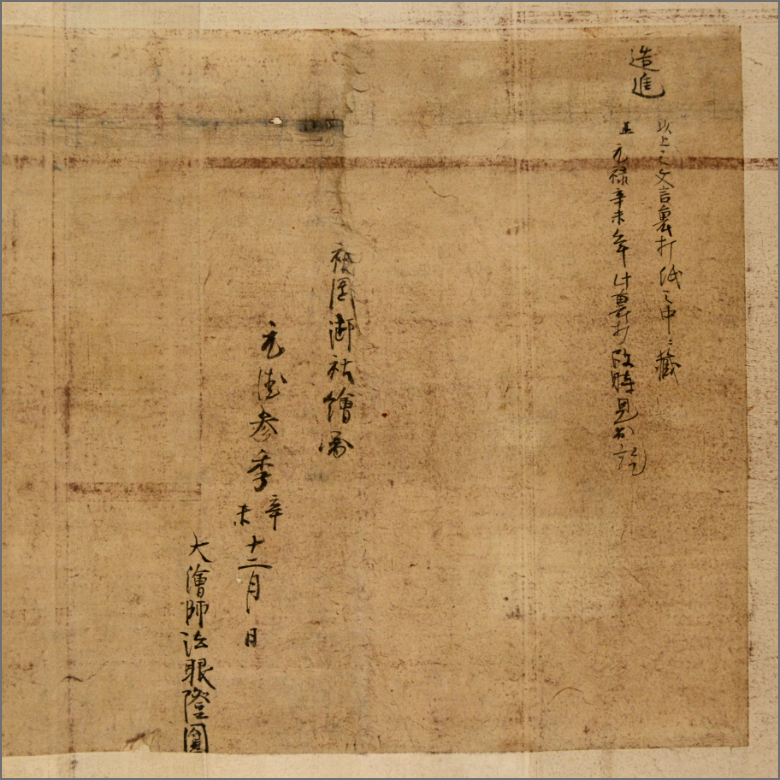 造進
以上之文言裏打紙之中ニ蔵
元禄辛未年此裏打改時見出訖
祇園御社繪圖
元徳参季辛未十二月 日
大繪師法眼隆圓